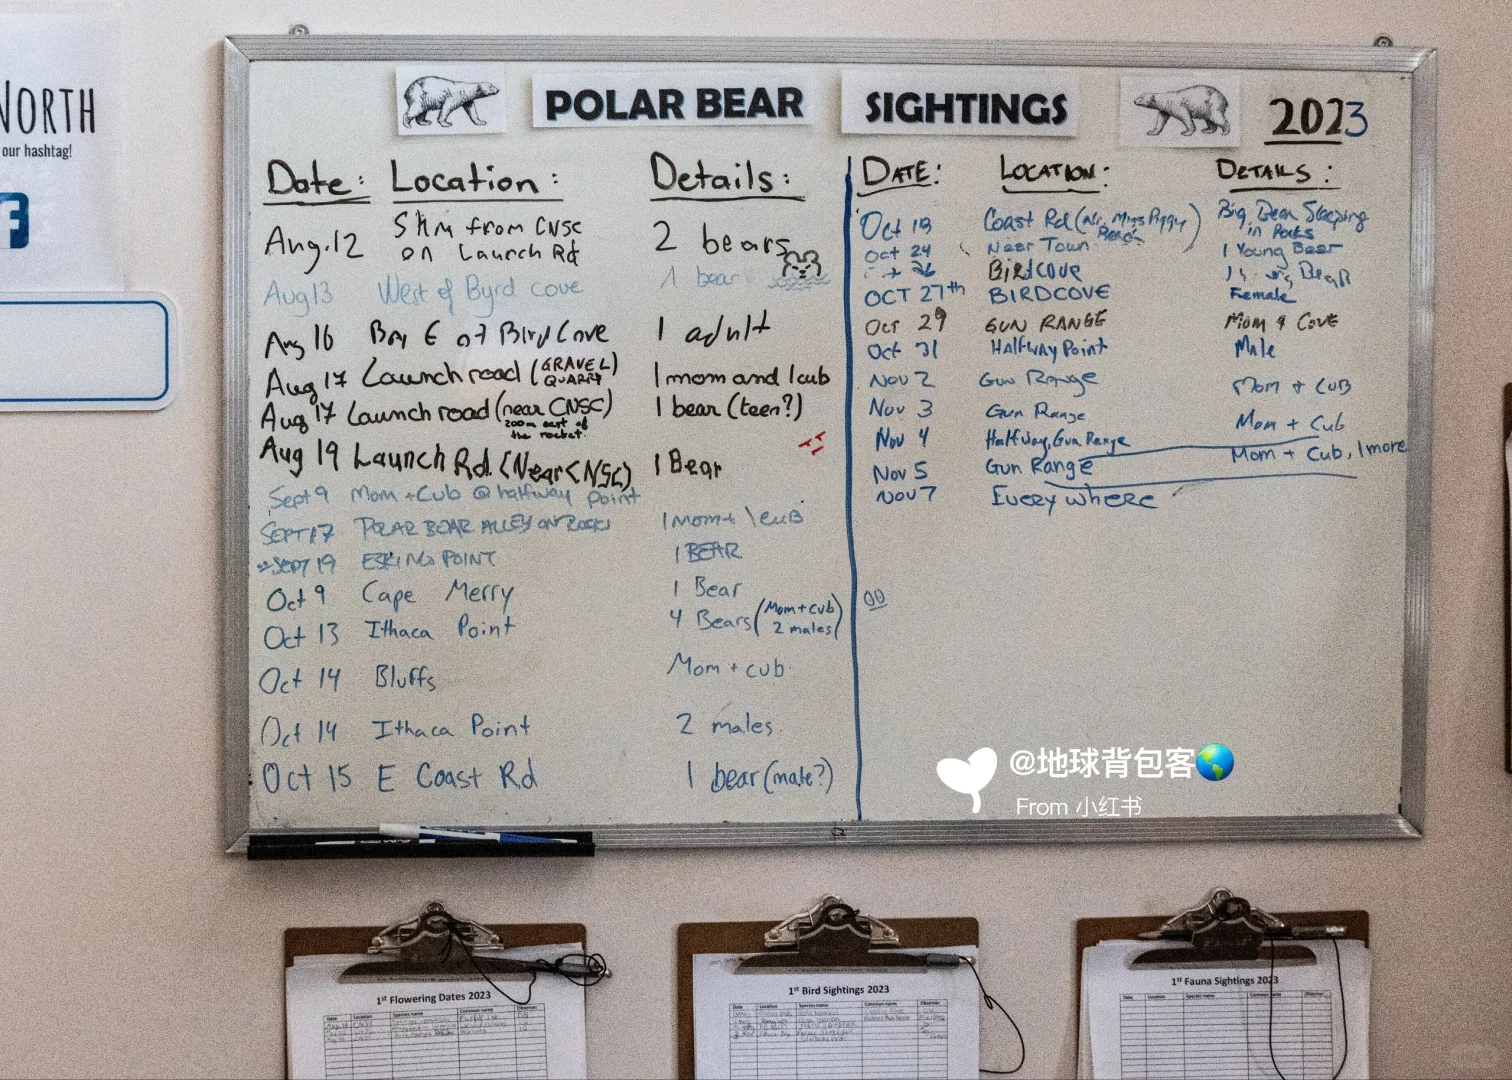 NORTH
our hashtag!
f
POLAR BEAR SIGHTINGS 2023
Date: Location: Details:
Aug.12 5km from CNSC on Launch Rd 2 bears
Aug13 West of Byrd cove 1 bear
Aug 16 Bay E of Bird Cove 1 adult
Aug 17 Launch road (GRAVEL QUARRY) 1 mom and 1 cub
Aug 17 Launch road (near CNSC) 200m east of the rocket. 1 bear (teen?)
Aug 19 Launch Rd. (Near CNSC) 1 Bear
Sept 9 Mom + Cub @ halfway point
SEPT 17 POLAR BEAR ALLEY ON ROCKS 1 Mom + 1 CUB
SEPT 19 ESKIMO POINT 1 BEAR
Oct 9 Cape Merry 1 Bear
Oct 13 Ithaca Point 4 Bears (Mom + cub 2 males)
Oct 14 Bluffs Mom + cub
Oct 14 Ithaca Point 2 males
Oct 15 E Coast Rd 1 bear (male?)
DATE: LOCATION: DETAILS:
Oct 18 Coast Rd (Nr. Miss Piggy Road) Big Bear Sleeping in Rocks
Oct 24 Near Town 1 Young Bear
26 Birdcove Bear
OCT 27th BIRDCOVE Female
Oct 29 GUN RANGE MOM & COVE
Oct 31 Halfway Point Male
Nov 2 Gun Range Mom + CUB
Nov 3 Gun Range Mom + Cub
Nov 4 Halfway, Gun Range Mom + Cub, 1 more
Nov 5 Gun Range
Nov 7 Everywhere
@地球背包客
From 小红书
1st Flowering Dates 2023
Date Location Species name Common name Observer
1st Bird Sightings 2023
Date Location Species name Common name Observer
1st Fauna Sightings 2023
Date Location Species name Common name Observer